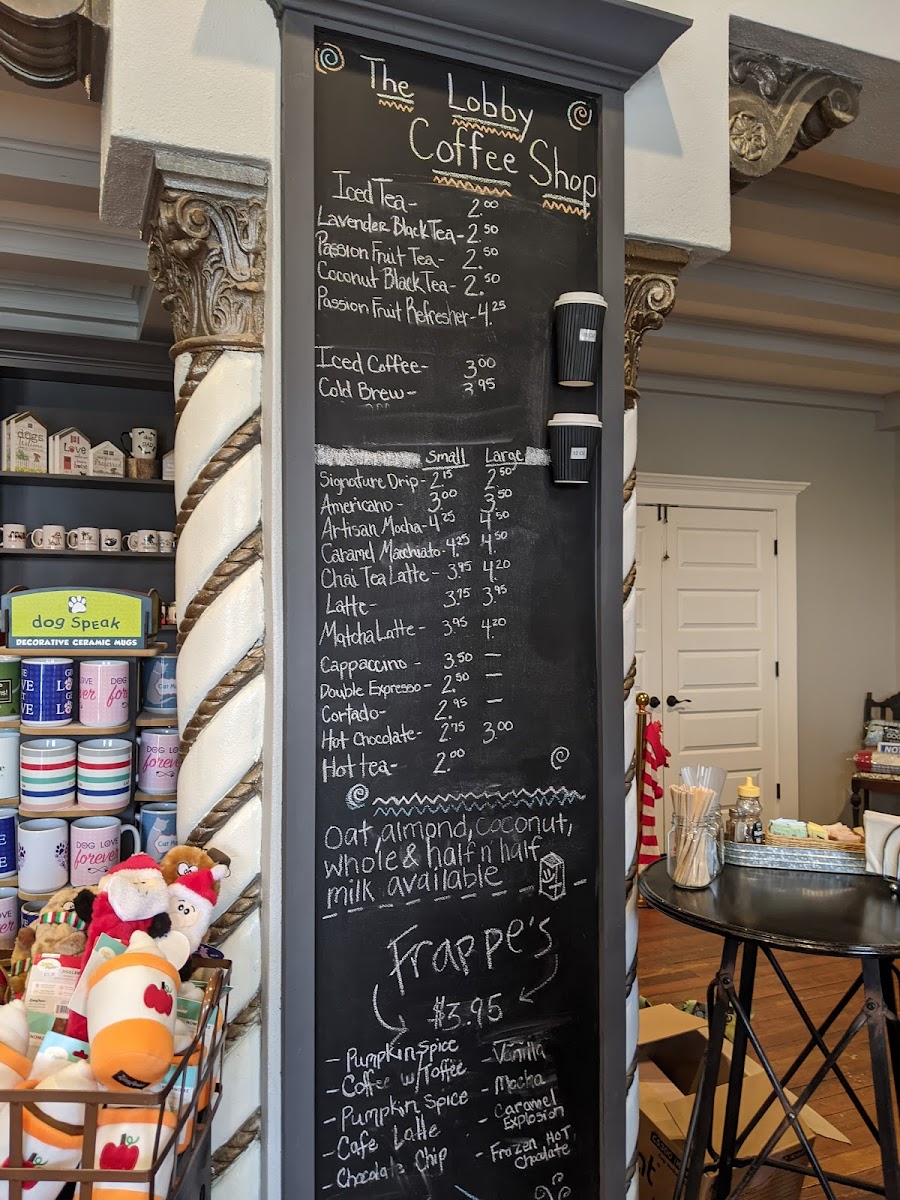 The Lobby
Coffee Shop
Iced Tea- 2.00
Lavender Black Tea- 2.50
Passion Fruit Tea- 2.50
Coconut Black Tea- 2.50
Passion Fruit Refresher- 4.25
Iced Coffee- 3.00
Cold Brew- 3.95
Small Large
Signature Drip- 2.15 2.50
Americano- 3.00 3.50
Artisan Mocha- 4.25 4.50
Caramel Macchiato- 4.25 4.50
Chai Tea Latte- 3.95 4.20
Latte- 3.75 3.95
Matcha Latte- 3.95 4.20
Cappaccino- 3.50 —
Double Expresso- 2.50 —
Cortado- 2.95 —
Hot Chocolate- 2.75 3.00
Hot tea- 2.00
Oat, almond, coconut,
whole & half n' half
milk available
Frappe's
$3.95
- Pumpkin Spice
- Coffee w/Toffee
- Pumpkin Spice
- Cafe Latte
- Chocolate Chip
- Vanilla
- Mocha
- Caramel
Explosion
- Frozen HOT
Chocolate
dog speak
DECORATIVE CERAMIC MUGS
DOG LOVE
forever